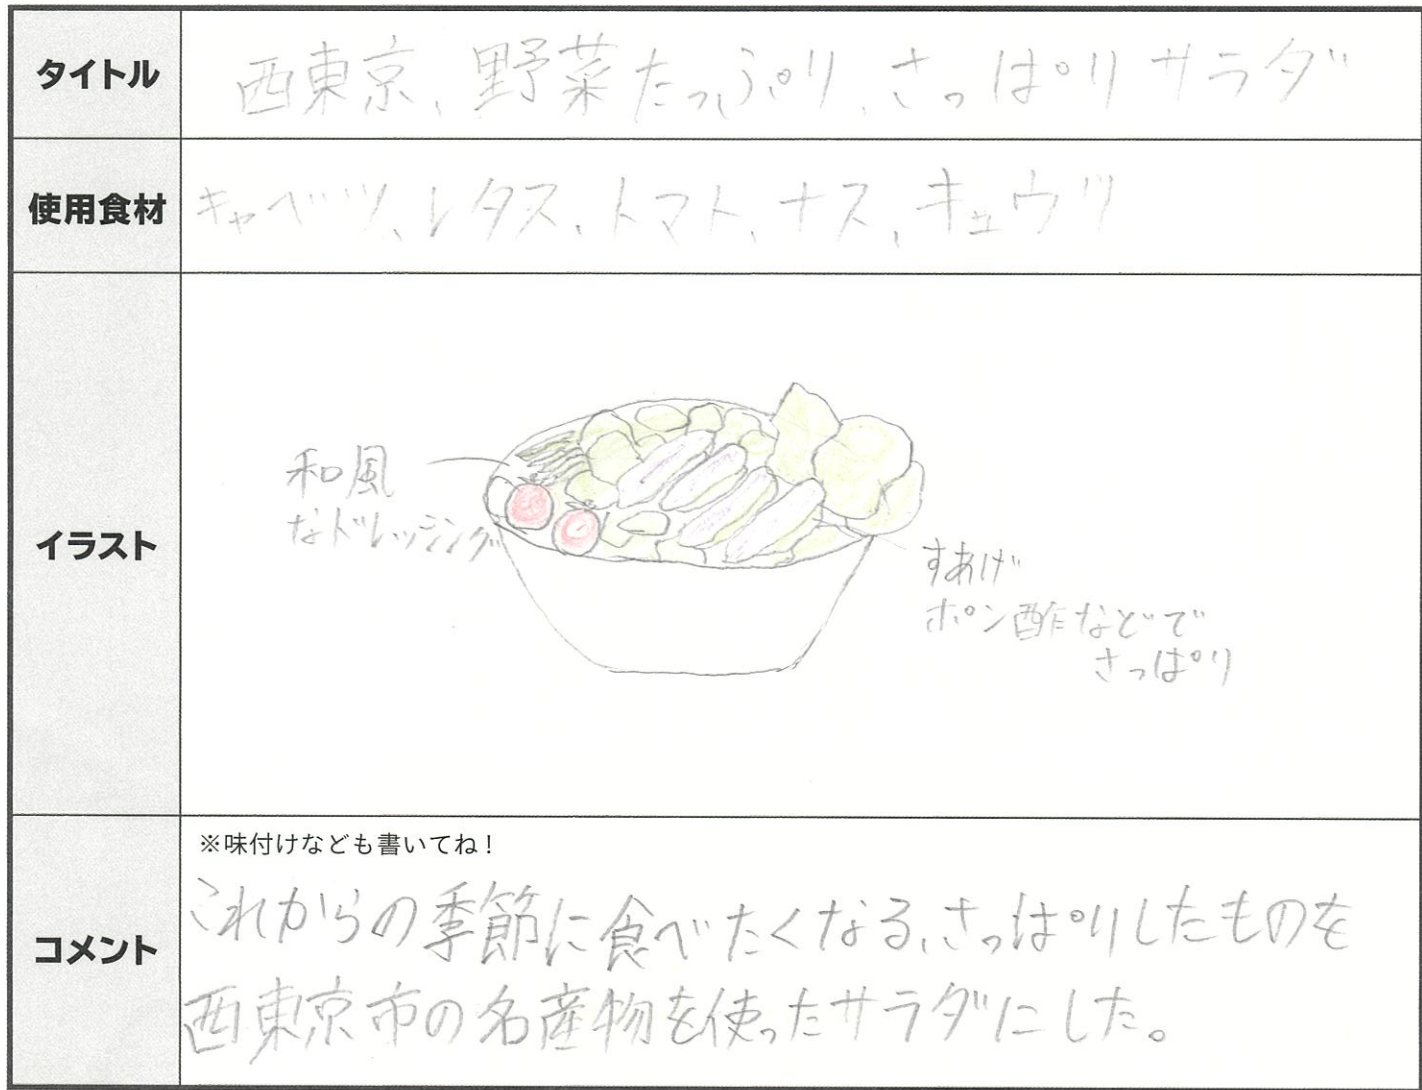 タイトル
西東京、野菜たっぷり、さっぱりサラダ
使用食材
キャベツ、レタス、トマト、ナス、キュウリ
イラスト
和風
なドレッシング
すあげ
ポン酢などで
さっぱり
コメント
※味付けなども書いてね!
これからの季節に食べたくなる、さっぱりしたものを
西東京市の名産物を使ったサラダにした。